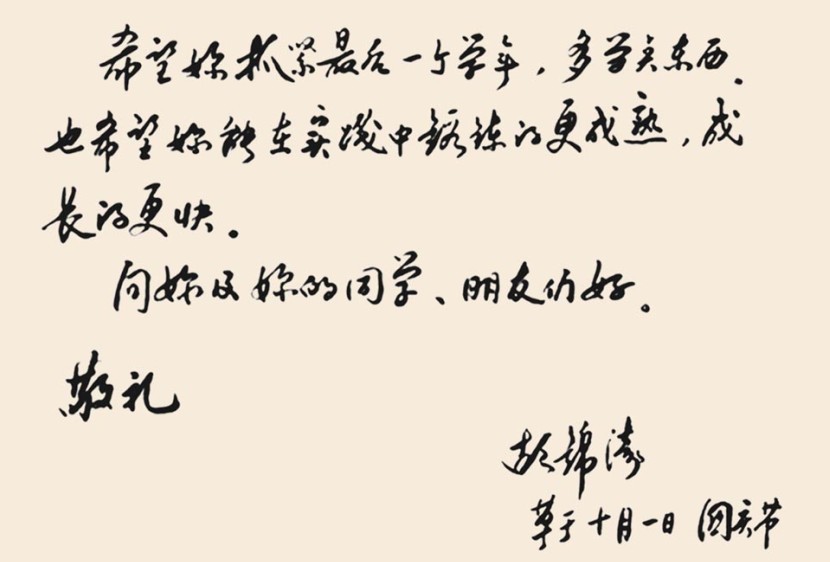 希望妳抓紧最后一个学年，多学点东西.
也希望妳能在实践中锻炼的更成熟，成
长的更快。
向妳及妳的同学、朋友们好。
敬礼
胡锦涛
草于十月一日 国庆节